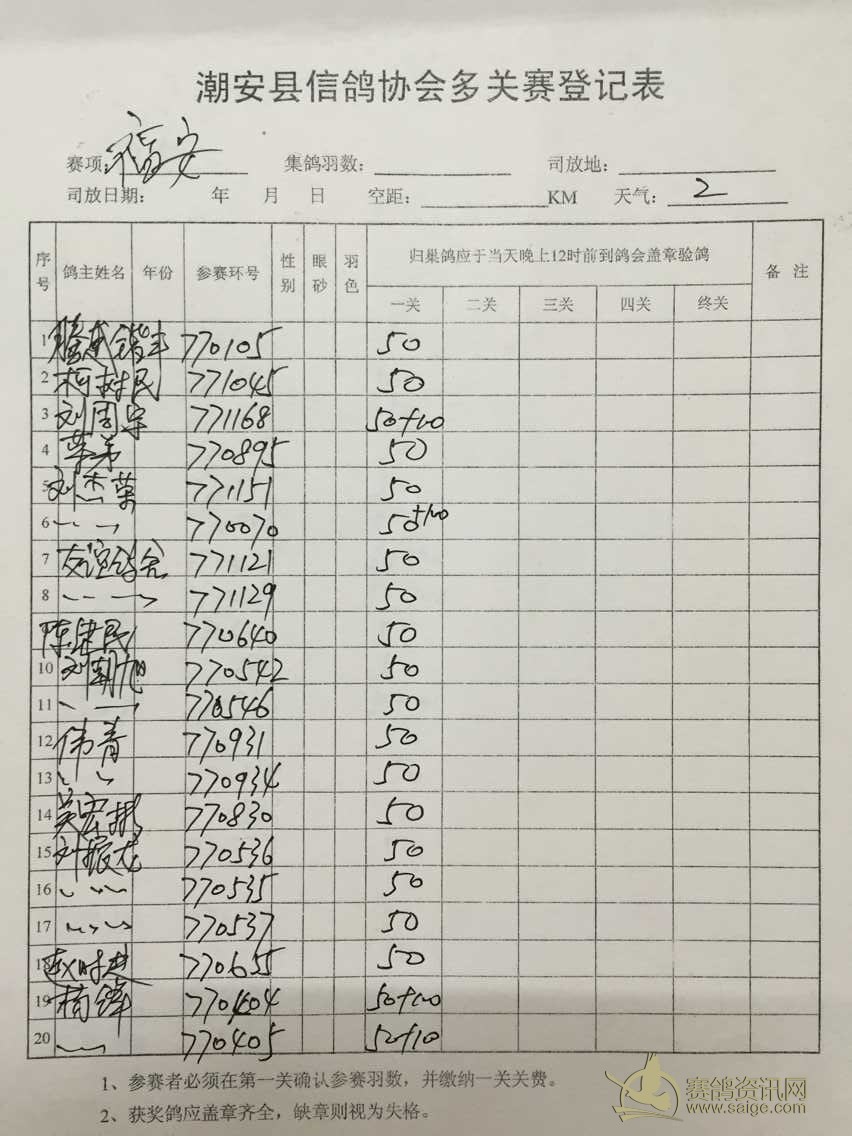 潮安县信鸽协会多关赛登记表
赛项: 福安 集鸽羽数: 司放地:
司放日期: 年 月 日 空距: KM 天气: 2
序号 鸽主姓名 年份 参赛环号 性别 眼砂 羽色 归巢鸽应于当天晚上12时前到鸽会盖章验鸽 备 注
一关 二关 三关 四关 终关
1 770105 50
2 柯树民 771045 50
3 刘周宇 771168 50+100
4 荣弟 770895 50
5 刘杰荣 771151 50
6 〃 770070 50+100
7 友谊鸽舍 771121 50
8 〃 771129 50
陈建民 770640 50
10 刘朝旭 770542 50
11 〃 770546 50
12 伟青 770931 50
13 〃 770934 50
14 吴宏彬 770830 50
15 刘振龙 770536 50
16 〃 770535 50
17 〃 770537 50
18 赵时进 770655 50
19 楠锋 770404 50+100
20 〃 770405 50+10
1、参赛者必须在第一关确认参赛羽数，并缴纳一关关费。
2、获奖鸽应盖章齐全，缺章则视为失格。
赛鸽资讯网
www.saige.com